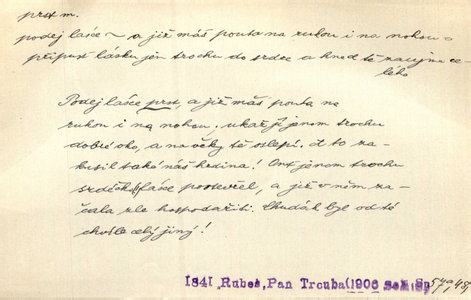 prst m.
podej lásce ~ a již máš pouta na rukou i na nohou =
připust lásku jen trochu do srdce a hned tě zaujme ce-
lého
Podej lásce prst, a již máš pouta na
rukou i na nohou. ukaž jí jenom trochu
dobré oko, a na věky tě oslepí. A to za-
kusil také náš hrdina! On jenom trochu
srdéčko lásce pootevřel, a již v něm za-
čala zle hospodařiti. Chudák byl od té
chvíle celý jiný!
1841 Rubeš, Pan Trouba (1906 Seb. Sp 57a, 48)